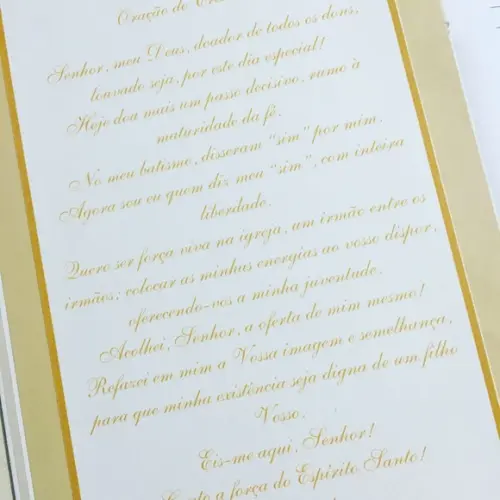 Oração do
Senhor, meu Deus, doador de todos os dons,
louvado seja, por este dia especial!
Hoje dou mais um passo decisivo, rumo à
maturidade da fé.
No meu batismo, disseram "sim" por mim.
Agora sou eu quem diz meu "sim", com inteira
liberdade.
Quero ser força viva na igreja, um irmão entre os
irmãos; colocar as minhas energias ao vosso dispor,
oferecendo-vos a minha juventude.
Acolhei, Senhor, a oferta de mim mesmo!
Refazei em mim a Vossa imagem e semelhança,
para que minha existência seja digna de um filho
Vosso.
Eis-me aqui, Senhor!
a força do Espírito Santo!